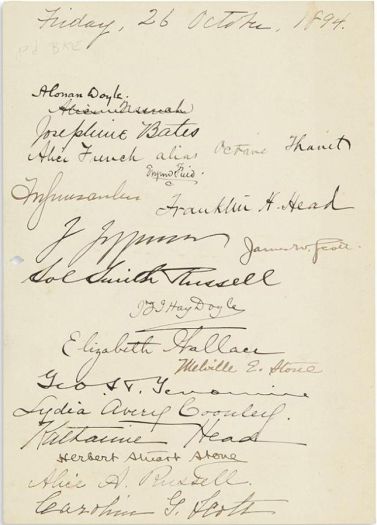 Friday, 26 October, 1894.
A Conan Doyle.
Josephine Bates
Alice French alias Octave Thanet
Eugene Field.
Franklin H. Head
James W. Scott.
Sol Smith Russell
J F I Hay Doyle
Elizabeth Wallace
Melville E. Stone
Lydia Avery Coonley.
Katharine Head
Herbert Stuart Stone
Alice A. Russell.
Caroline G. Scott